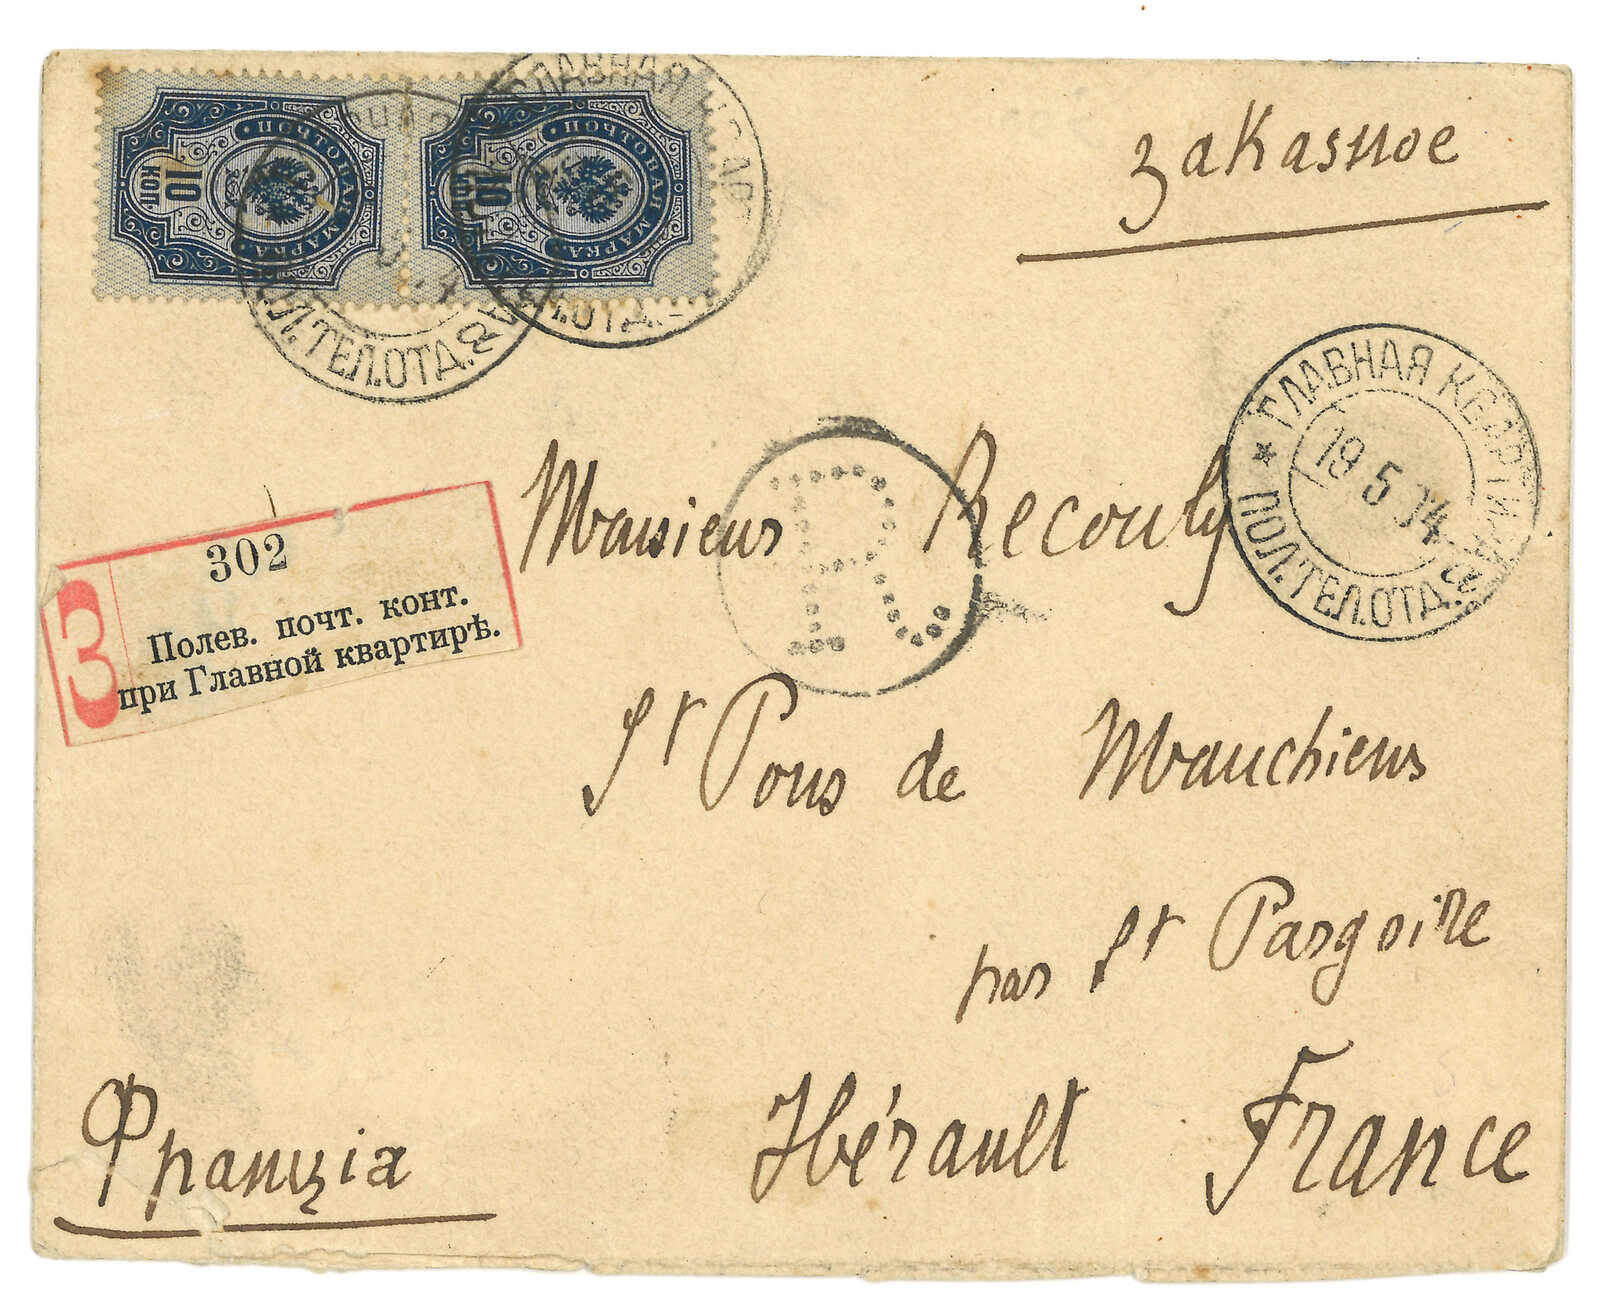 заказное
ПОЧТОВАЯ МАРКА
10 КОП.
ПОЧТОВАЯ МАРКА
10 КОП.
ПОЛ.ТЕЛ.ОТД.
ГЛАВНАЯ КВАР
ГЛАВНАЯ КВАРТИРА
19 5 04
ПОЛ.ТЕЛ.ОТД.
R
З
302
Полев. почт. конт.
при Главной квартирѣ.
Monsieur Recouly
St Pons de Mauchiens
par St Pargoire
Hérault France
Франція